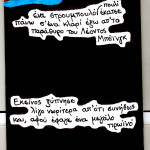 πουλί
ένα στρουμπουλό έκατσε
πάνω σ'ένα κλαρί έξω απ'το
παράθυρο του Λέοντος
Μπέινγκ
Εκείνος ξύπνησε
λίγο νωρίτερα απ'ότι συνήθως
και, αφού έφαγε ένα μεγάλο
πρωϊνό